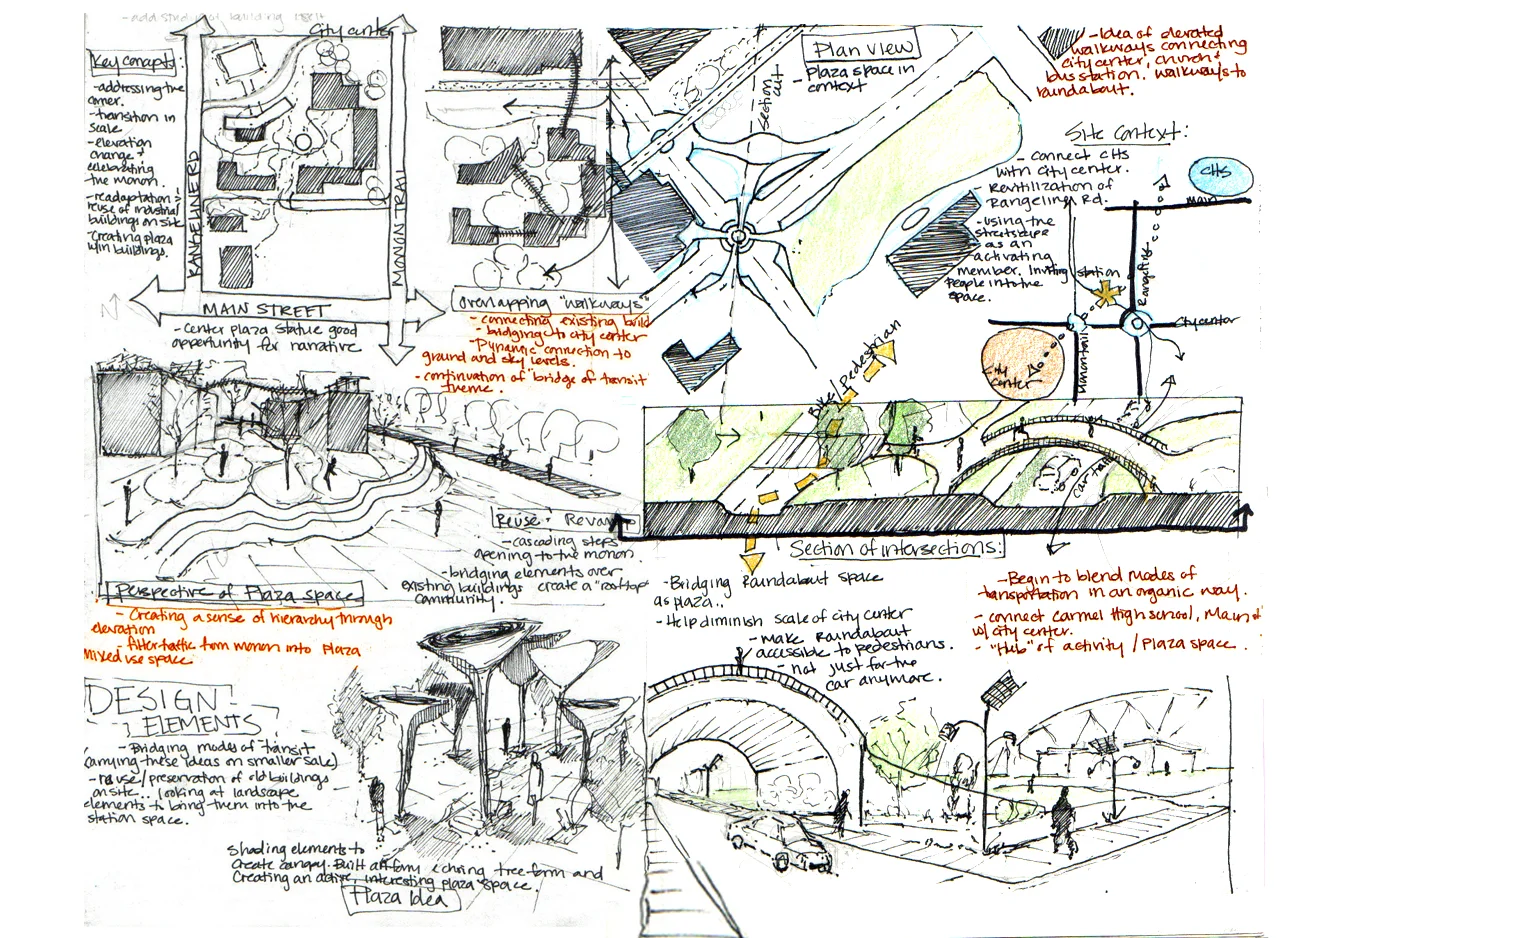 - add study of building itself
City center
Key concepts:
- addressing the
corner.
- transition in
scale
- elevation
change +
celebrating
the monon.
- readaptation +
reuse of industrial
buildings on site
- Creating plaza
w/in buildings.
RANGELINE RD
MONON TRAIL
N
MAIN STREET
- center plaza statue good
opportunity for narrative
Overlapping "walkways"
- connecting existing build
- bridging to city center
- Dynamic connection to
ground and sky levels.
- continuation of "bridge of transit"
theme.
Plan View
- Plaza space in
context
Section
cut
- Idea of elevated
walkways connecting
city center, church +
bus station. walkways to
roundabout.
Site Context:
- Connect CHS
with City center.
- Revitilization of
Rangeline Rd.
- using the
streetscape
as an
activating
member. Inviting
people into the
space.
CHS
Main
station
Rangeline
City center
City
Center
Monon trail
Bike/Pedestrian
car
Section of intersections:
Reuse + Revamp
- cascading steps
opening to the monon.
- bridging elements over
existing buildings create a "rooftop"
community.
Perspective of Plaza space
- Creating a sense of hierarchy through
elevation
- filter traffic from monon into Plaza
mixed use space
- Bridging Roundabout space
as plaza..
- Help diminish scale of city center
- make Roundabout
accessible to pedestrians.
- not just for the
car anymore.
- Begin to blend modes of
transportation in an organic way.
- connect Carmel High school, Main st
w/ city center.
- "Hub" of activity / Plaza space.
DESIGN
ELEMENTS
- Bridging modes of transit
(carrying these ideas on smaller scale)
- reuse/preservation of old buildings
on site.. looking at landscape
elements to bring them into the
station space.
Shading elements to
create canopy. Built echoing tree form and
Creating an active, interesting plaza space.
Plaza Idea